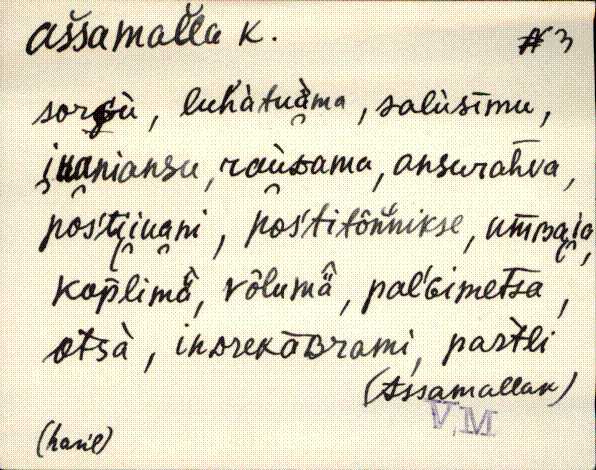 aššamaľľa k. #3
sorgù, luhàtuàma, salùsīmu,
juaniansu, raùsama, ansuratīva,
pośtijuani, pośtitõnnikse, umbaja,
kop̄limä, võlumä, paľɢimet̄sa,
ot̀sà, inderekāʙrami, par̀tli
(Assamallak)
VM
(haril)